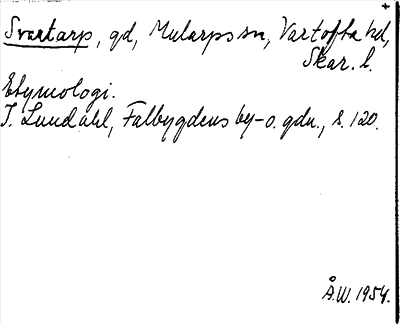 +
Svartarp, gd, Mularps sn, Vartofta hd,
Skar. l.
Etymologi.
I. Lundahl, Falbygdens by- o. gdn., s. 120.
Å.W. 1954.